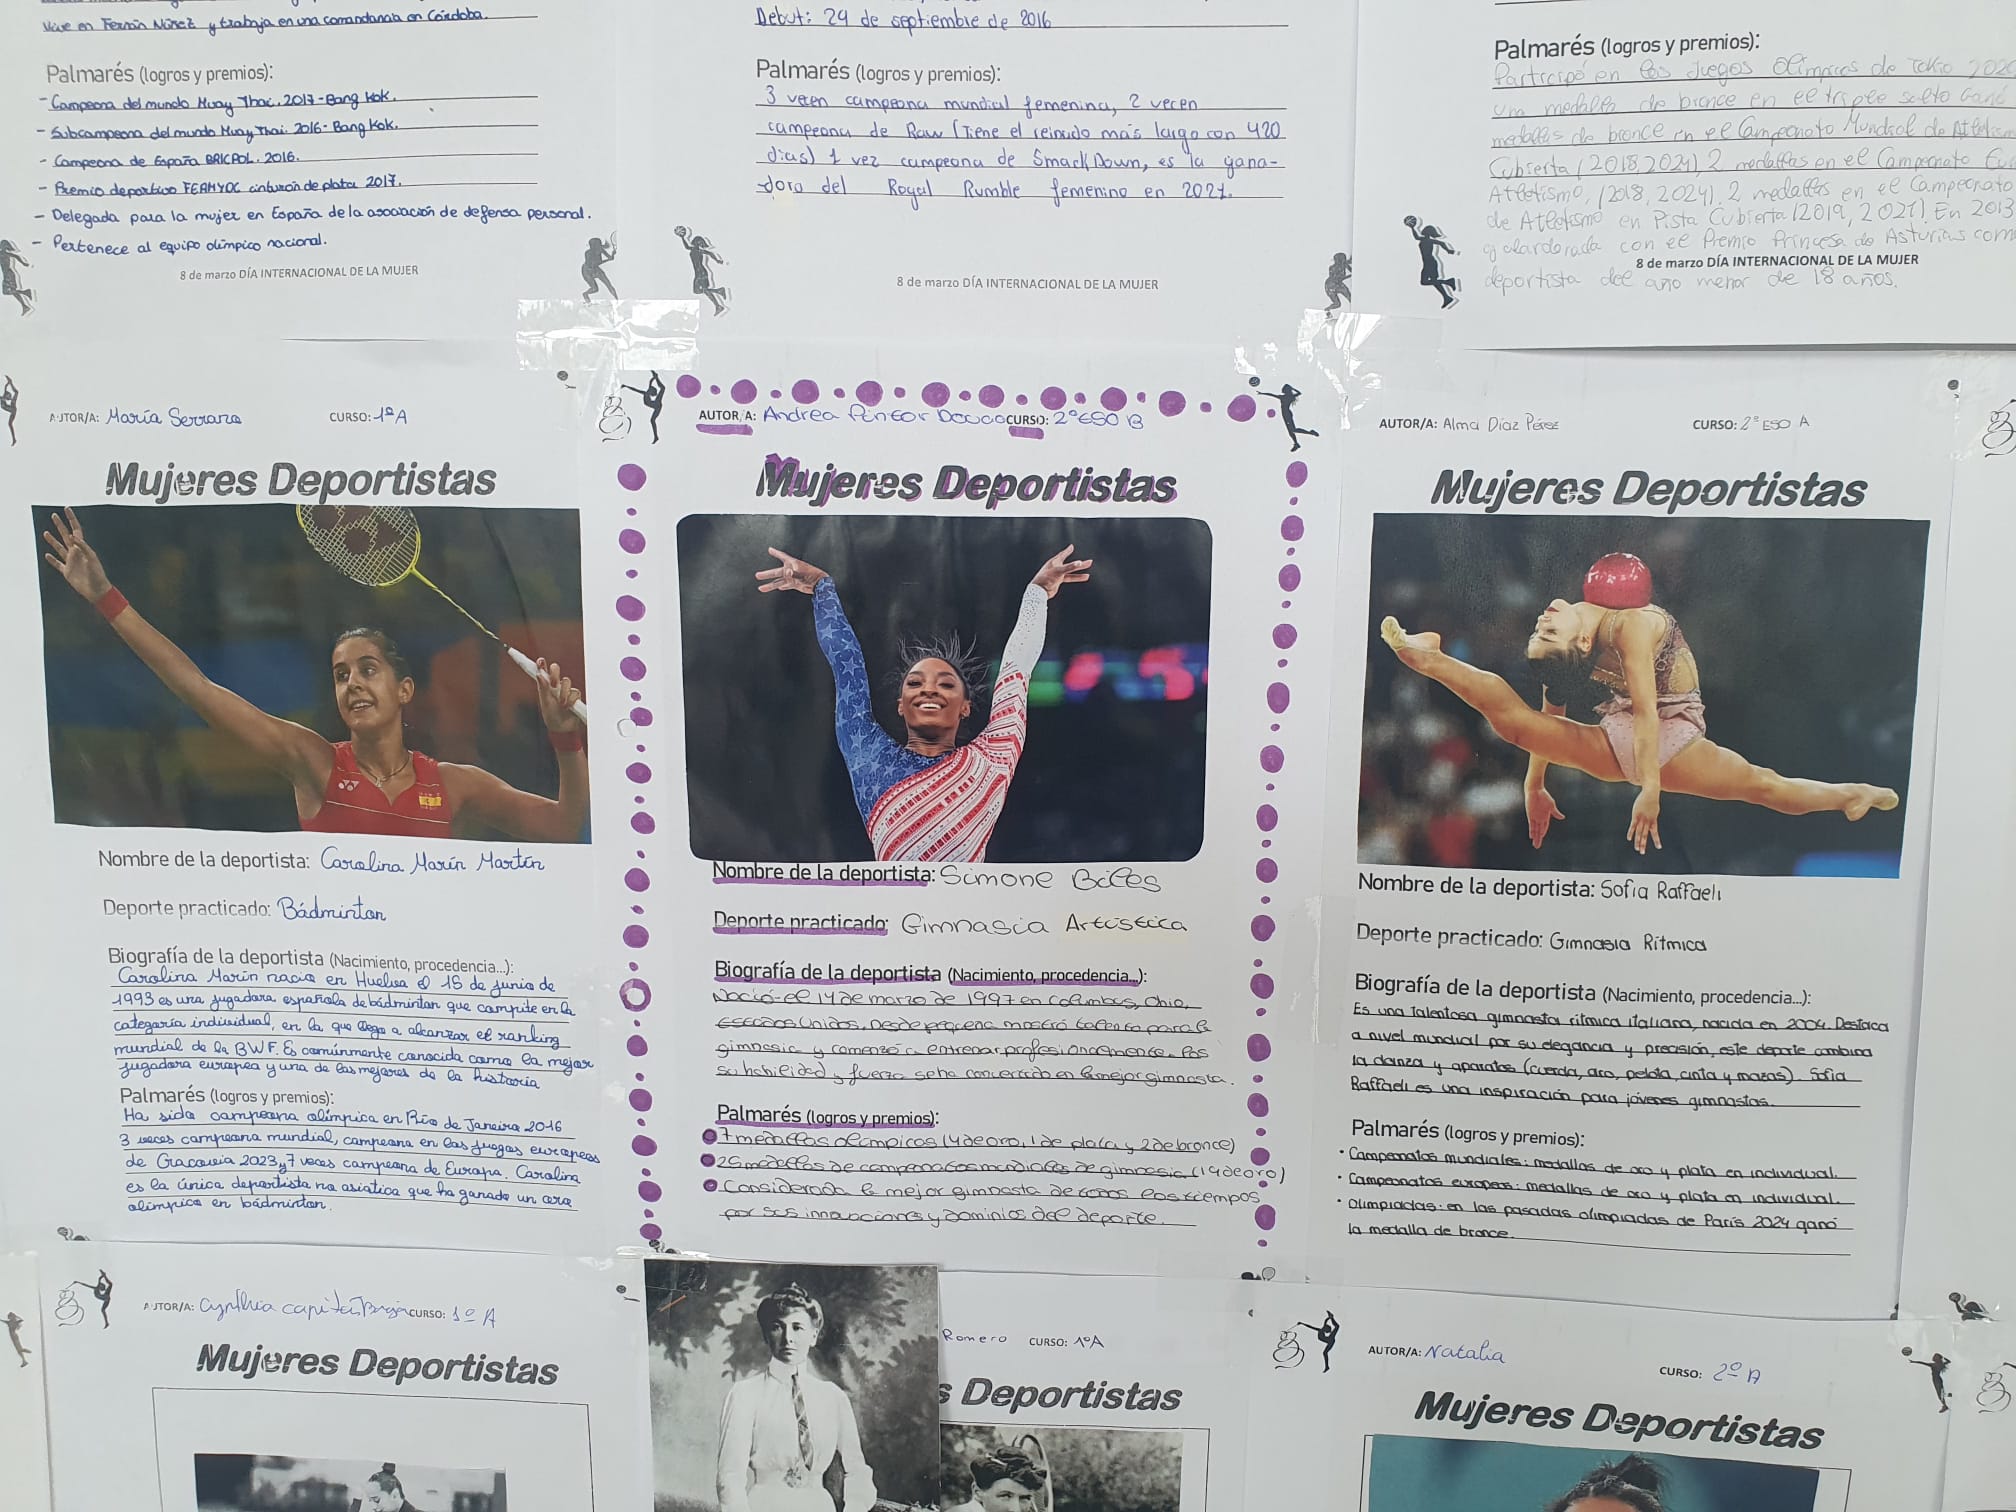 Vive en Fernán Núñez y trabaja en una comandancia en Córdoba.
Palmarés (logros y premios):
- Campeona del mundo Muay Thai. 2017 - Bang Kok.
- Subcampeona del mundo Muay Thai. 2016 - Bang Kok.
- Campeona de España BRICPOL. 2016.
- Premio deportivo FEAMYDC cinturón de plata 2017.
- Delegada para la mujer en España de la asociación de defensa personal.
- Pertenece al equipo olímpico nacional.
8 de marzo DÍA INTERNACIONAL DE LA MUJER
Debut: 24 de septiembre de 2016
Palmarés (logros y premios):
3 vecen campeona mundial femenina, 2 vecen
campeona de Raw (Tiene el reinado más largo con 420
dias) 1 vez campeona de SmackDown, es la gana-
dora del Royal Rumble femenino en 2021.
8 de marzo DÍA INTERNACIONAL DE LA MUJER
Palmarés (logros y premios):
Participó en los Juegos Olímpicos de Tokio 2020
um medalla de bronce en el triple salto Ganó
medallas de bronce en el Campeonato Mundial de
Cubierta (2018, 2021), 2 medallas en el Campeonato
Atletismo, (2018, 2024). 2 medallas en el Campeonato
de Atletismo en Pista Cubierta (2019, 2021). En 2013
galardonada con el Premio Princesa de Asturias como
8 de marzo DÍA INTERNACIONAL DE LA MUJER
deportista del año menor de 18 años.
AUTOR/A: María Serrano CURSO: 1º A
Mujeres Deportistas
YONEX
Nombre de la deportista: Carolina Marín Martín
Deporte practicado: Bádminton
Biografía de la deportista (Nacimiento, procedencia...):
Carolina Marín nacio en Huelva el 15 de junio de
1993 es una jugadora española de bádminton que compite en la
categoría individual, en la que llego a alcanzar el ranking
mundial de la BWF. Es comúnmente conocida como la mejor
jugadora europea y una de las mejores de la historia
Palmarés (logros y premios):
Ha sido campeona olímpica en Río de Janeiro 2016
3 veces campeona mundial, campeona en los juegos europeos
de Cracovia 2023 y 7 veces campeona de Europa. Carolina
es la única deportista no asiatica que ha ganado un oro
olímpico en bádminton.
AUTOR/A: Andrea Pintor CURSO: 2º ESO B
Mujeres Deportistas
Nombre de la deportista: Simone Biles
Deporte practicado: Gimnasia Artística
Biografía de la deportista (Nacimiento, procedencia...):
Nació el 14 de marzo de 1997 en Columbus, Ohio,
Estados Unidos. Desde pequeña mostró talento para la
gimnasia y comenzó a entrenar profesionalmente. Por
su habilidad y fuerza se ha convertido en la mejor gimnasta.
Palmarés (logros y premios):
7 medallas olímpicas (4 de oro, 1 de plata y 2 de bronce)
25 medallas de campeonatos mundiales de gimnasia (19 de oro)
Considerada la mejor gimnasta de todos los tiempos
por sus innovaciones y dominios del deporte.
AUTOR/A: Alma Díaz Pérez CURSO: 2º ESO A
Mujeres Deportistas
Nombre de la deportista: Sofia Raffaeli
Deporte practicado: Gimnasia Rítmica
Biografía de la deportista (Nacimiento, procedencia...):
Es una talentosa gimnasta rítmica italiana, nacida en 2004. Destaca
a nivel mundial por su elegancia y precisión, este deporte combina
la danza y aparatos (cuerda, aro, pelota, cinta y mazas). Sofia
Raffaeli es una inspiración para jóvenes gimnastas.
Palmarés (logros y premios):
• Campeonatos mundiales: medallas de oro y plata en individual.
• Campeonatos europeos: medallas de oro y plata en individual.
• Olimpiadas: en las pasadas olimpiadas de París 2024 ganó
la medalla de bronce.
AUTOR/A: Cynthia CURSO: 1º A
Mujeres Deportistas
Romero CURSO: 1º A
s Deportistas
AUTOR/A: Natalia CURSO: 2º A
Mujeres Deportistas